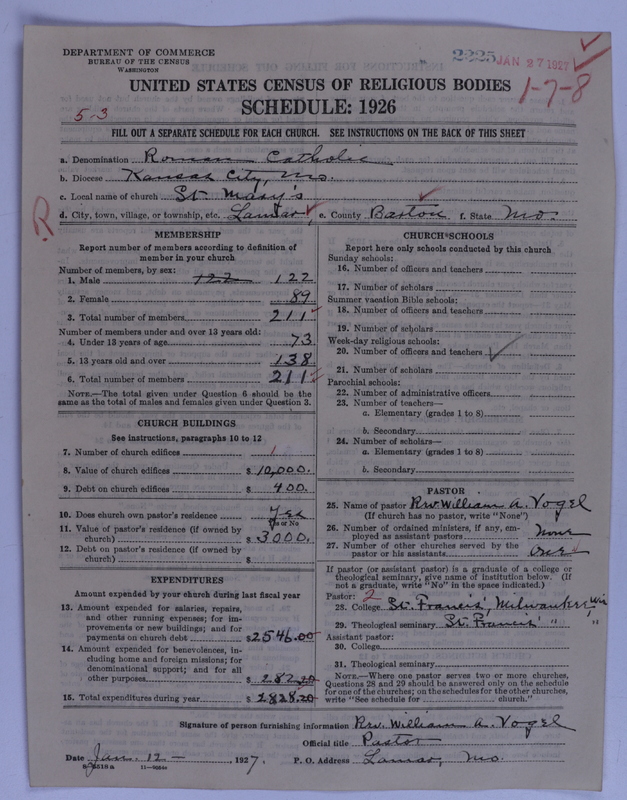 DEPARTMENT OF COMMERCE
BUREAU OF THE CENSUS
WASHINGTON
2225 JAN 27 1927
UNITED STATES CENSUS OF RELIGIOUS BODIES
1-7-8
SCHEDULE: 1926
5-3
FILL OUT A SEPARATE SCHEDULE FOR EACH CHURCH. SEE INSTRUCTIONS ON THE BACK OF THIS SHEET
a. Denomination Roman Catholic
b. Diocese Kansas City, Mo.
c. Local name of church St. Mary's
R
d. City, town, village, or township, etc. Lamar, e. County Barton f. State Mo.
MEMBERSHIP
Report number of members according to definition of
member in your church
Number of members, by sex:
1. Male 122 122
2. Female 89
3. Total number of members 211
Number of members under and over 13 years old:
4. Under 13 years of age 73
5. 13 years old and over 138
6. Total number of members 211
NOTE.—The total given under Question 6 should be the
same as the total of males and females given under Question 3.
CHURCH BUILDINGS
See instructions, paragraphs 10 to 12
7. Number of church edifices 1
8. Value of church edifices $ 10,000.
9. Debt on church edifices $ 400.
10. Does church own pastor's residence Yes
Yes or No
11. Value of pastor's residence (if owned by
church) $ 3000.
12. Debt on pastor's residence (if owned by
church) $
EXPENDITURES
Amount expended by your church during last fiscal year
13. Amount expended for salaries, repairs,
and other running expenses; for im-
provements or new buildings; and for
payments on church debt $ 2546.00
14. Amount expended for benevolences, in-
cluding home and foreign missions; for
denominational support; and for all
other purposes $ 282.20
15. Total expenditures during year $ 2828.20
CHURCH SCHOOLS
Report here only schools conducted by this church
Sunday schools:
16. Number of officers and teachers
17. Number of scholars
Summer vacation Bible schools:
18. Number of officers and teachers
19. Number of scholars
Week-day religious schools:
20. Number of officers and teachers
21. Number of scholars
Parochial schools:
22. Number of administrative officers
23. Number of teachers—
a. Elementary (grades 1 to 8)
b. Secondary
24. Number of scholars—
a. Elementary (grades 1 to 8)
b. Secondary
PASTOR
25. Name of pastor Rev. William A. Vogel
(If church has no pastor, write "None")
26. Number of ordained ministers, if any, em-
ployed as assistant pastors None
27. Number of other churches served by the
pastor or his assistants One
If pastor (or assistant pastor) is a graduate of a college or
theological seminary, give name of institution below. (If
not a graduate, write "No" in the space indicated.)
Pastor: 2
28. College St. Francis', Milwaukee Wis
29. Theological seminary St. Francis' " "
Assistant pastor:
30. College
31. Theological seminary
NOTE.—Where one pastor serves two or more churches,
Questions 28 and 29 should be answered only on the schedule
for one of the churches; on the schedules for the other churches,
write "See schedule for church."
Signature of person furnishing information Rev. William A. Vogel
Official title Pastor
Date Jan. 12 — , 1927. P. O. Address Lamar, Mo.